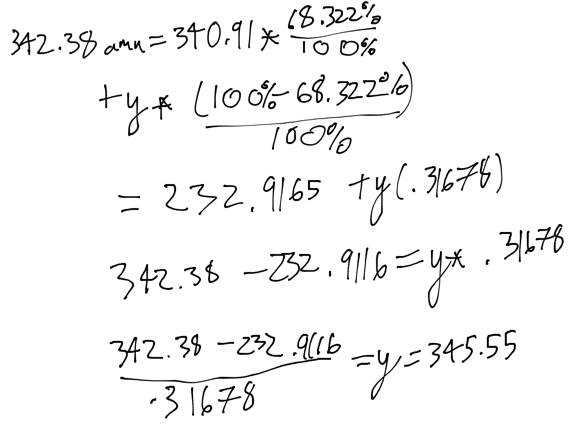 342.38 amu = 340.91 * 68.322% / 100%
+ y * (100% - 68.322%) / 100%
= 232.9165 + y(.31678)
342.38 - 232.9116 = y * .31678
342.38 - 232.9116 / .31678 = y = 345.55